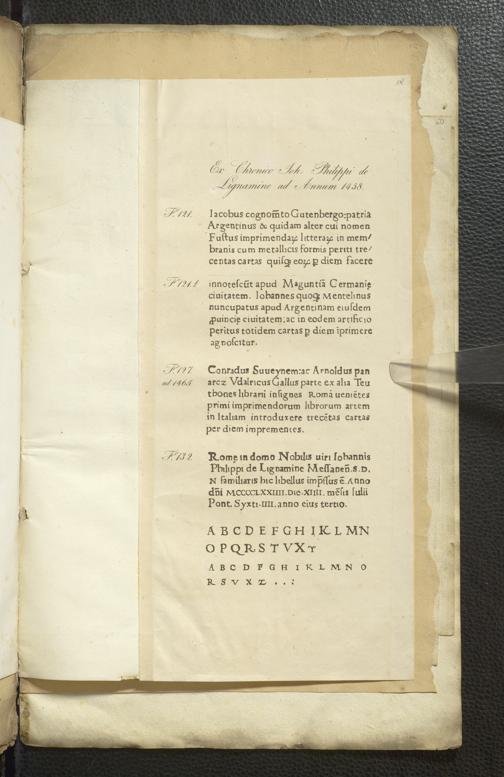 Ex Chronico Joh. Philippi de
Lignamine ad Annum 1458.
F. 121. Iacobus cognom̄to Gutenbergo: patria
Argentinus & quidam alter cui nomen
Fustus imprimendaꝝ litteraꝝ in mem/
branis cum metallicis formis periti tre/
centas cartas quisqꝫ eoꝝ ꝑ diem facere
F. 121.t innotescūt apud Maguntiā Germanię
ciuitatem. Iohannes quoqꝫ Mentelinus
nuncupatus apud Argentinam eiusdem
ꝓuincię ciuitatem: ac in eodem artificio
peritus totidem cartas ꝑ diem īprimere
agnoscitur.
F. 127. Conradus Suueynem: ac Arnoldus pan
ad 1465. arcz Vdalricus Gallus parte ex alia Teu
thones librarii insignes Romā ueniētes
primi imprimendorum librorum artem
in Italiam introduxere trecētas cartas
per diem imprementes.
F. 132. Romę in domo Nobilis uiri Iohannis
Philippi de Lignamine Messaneñ. S. D.
N familiaris hic libellus imp̄ssus ē. Anno
dñi MCCCCLXXIIII. Die. XIIII. mēsis Iulii
Pont. Syxti. IIII. anno eius tertio.
A B C D E F G H I K L M N
O P Q R S T V X T
A B C D F G H I K L M N O
R S V X Z . . :